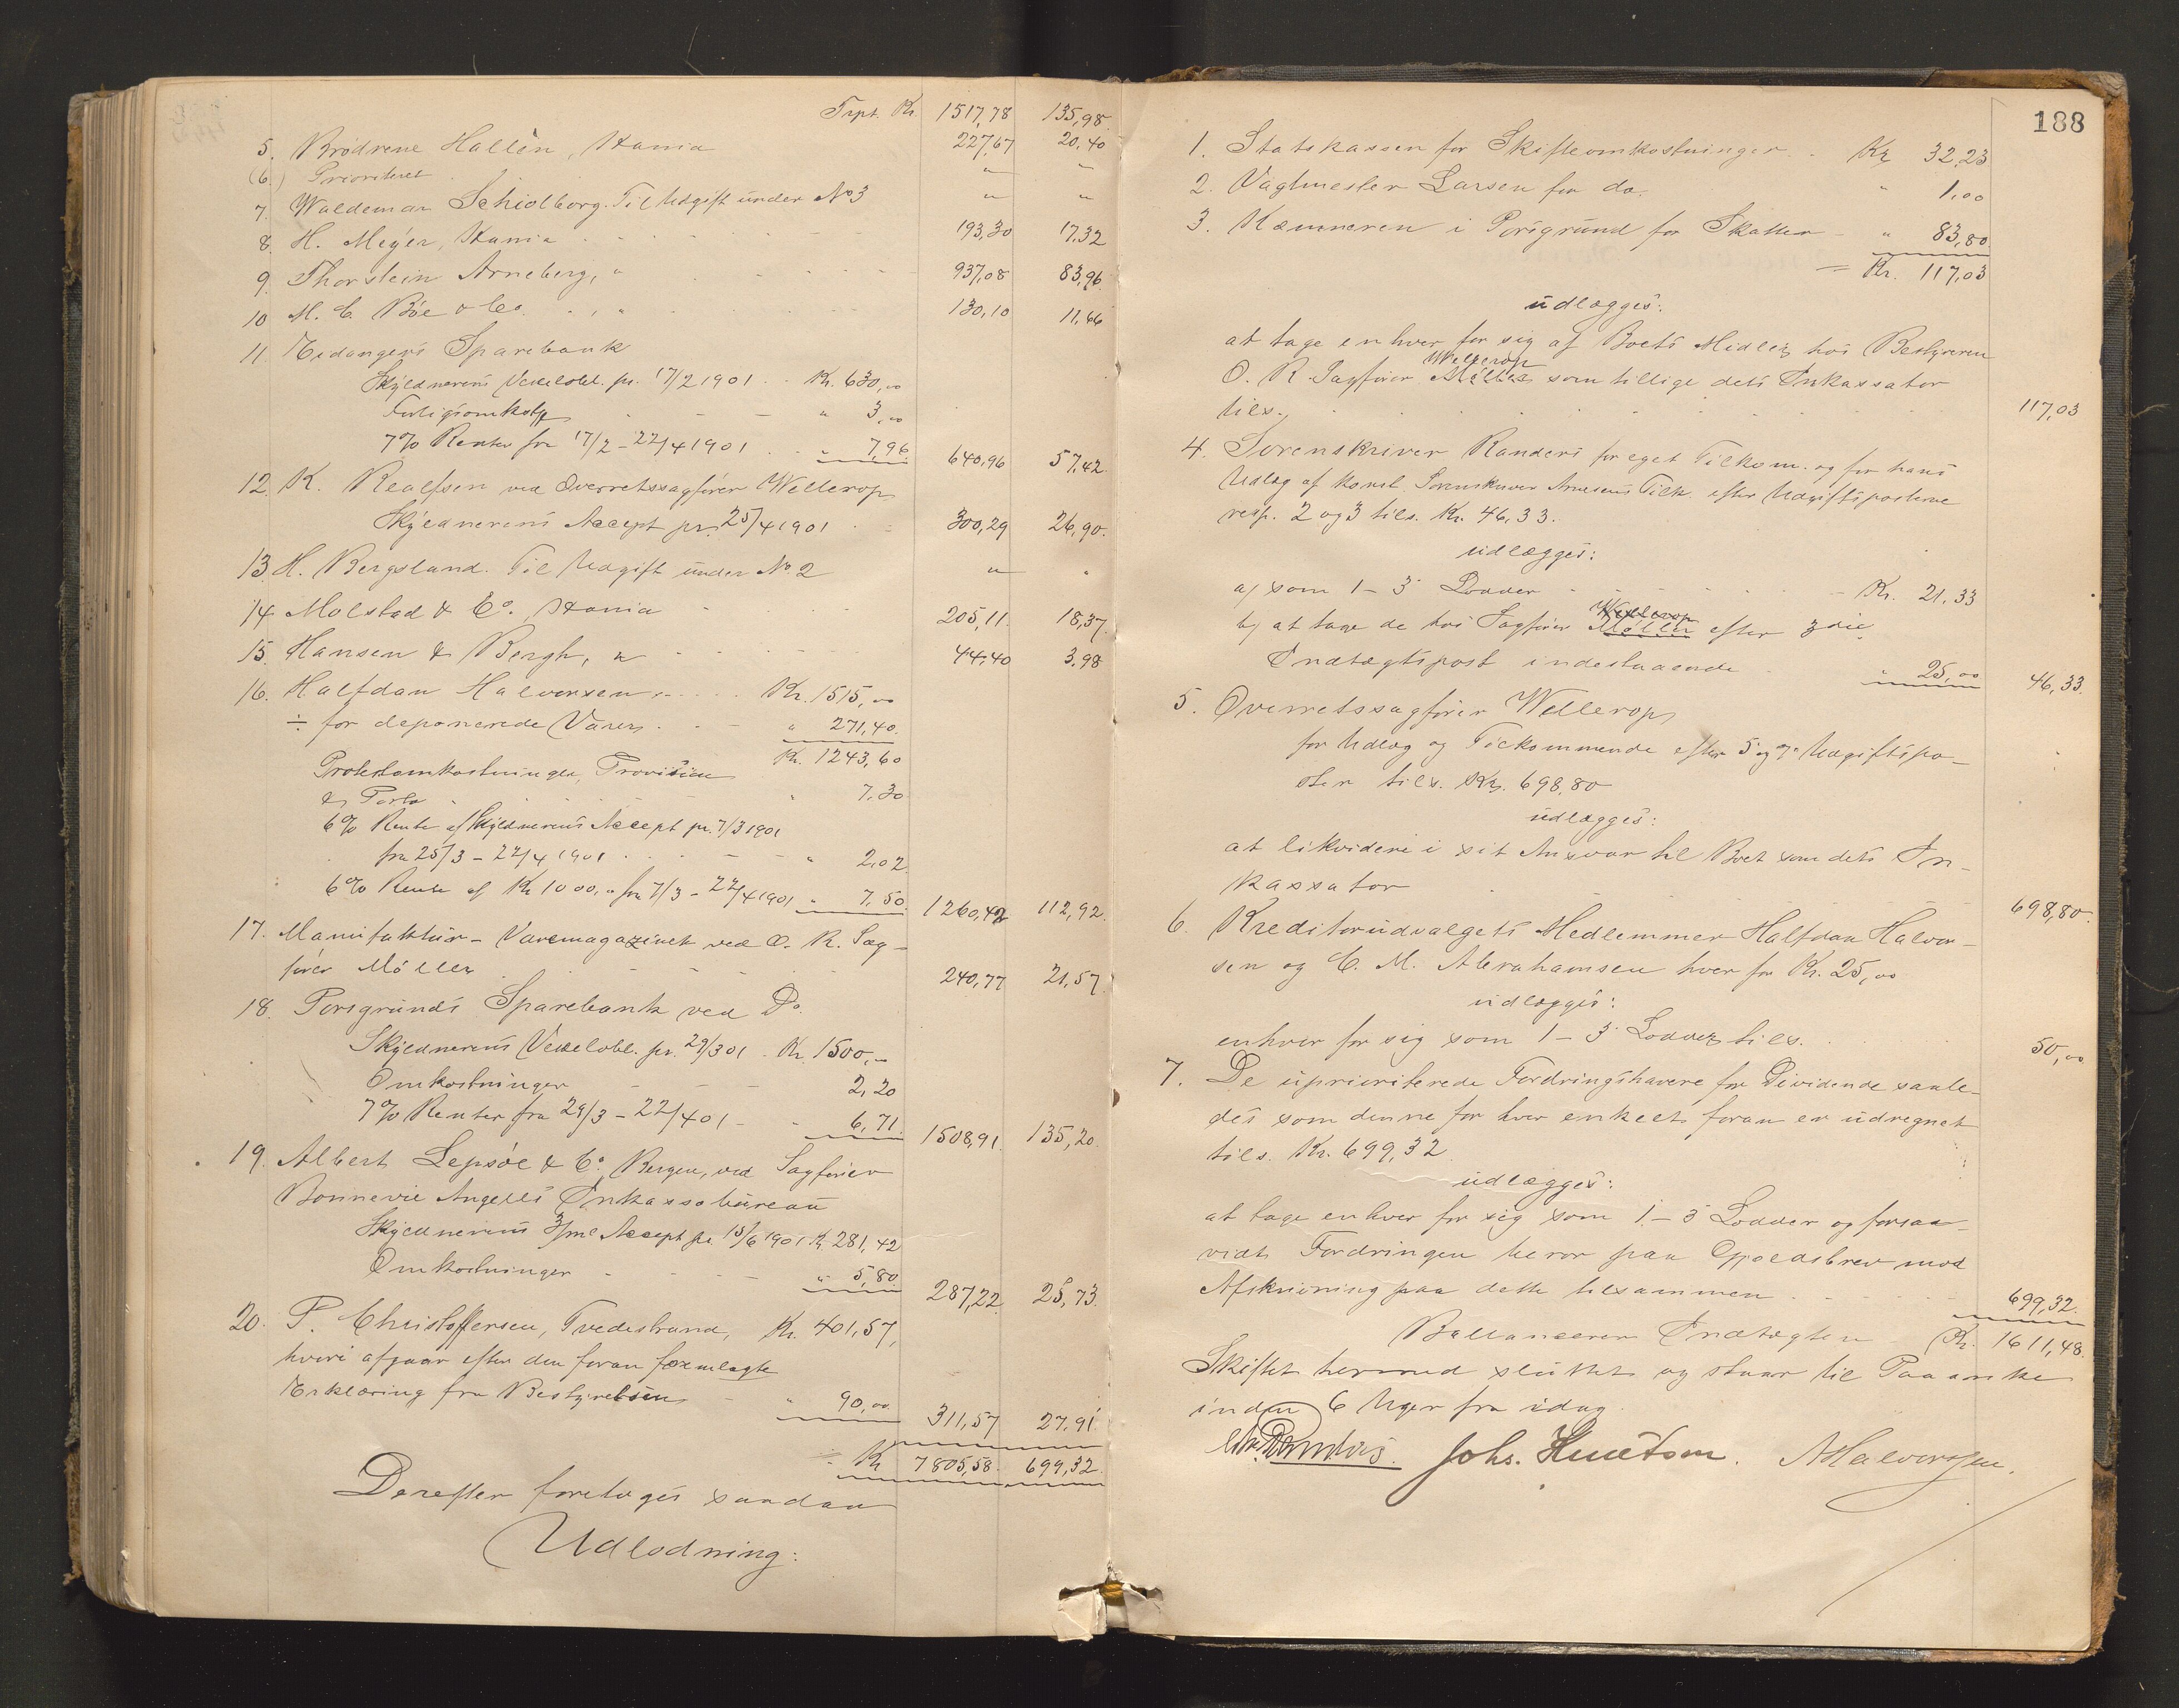 Trpt. Kr. 1517,78 135,98
5. Brødrene Hallèn, Kania 227,67 20,40
(6.) Prioriteret " "
7. Waldemar Schiolborg. Til Udgift under No 3 " "
8. H. Meyer, Kania 193,30 17,32
9. Thorstein Arneberg, " 937,08 83,96
10 M. C. Böe & Co. , " 130,10 11,66
11. Eidangers Sparebank
Skyldnerens Vexelobl. pr. 17/2 1901 Kr. 630,00
Forligsomkstg " 3,00
7% Renter fra 17/2 - 22/4 1901 " 7,96 640,96 57,42
12. K. Realfsen ved Overretssagfører Wellerop
Skyldnerens Accept pr. 25/4 1901 300,29 26,90.
13. H. Bergsland. Til Udgift under No 2 " "
14. Molstad & Co., Kania 205,11. 18,37.
15. Hansen & Bergh, " 44,40 3,98
16. Halfdan Halvorsen Kr. 1515,00
÷ for deponerede Varer " 271,40.
Kr. 1243,60
Protestomkostninger, Provision
& Porto " 7,30
6% Rente af Skyldnerens Accept pr. 7/3 1901
fra 25/3 - 22/4 1901 " 2,02.
6% Rente af Kr 1000,00 fra 7/3 - 22/4 1901 " 7,50. 1260,42 112,92.
17. Manufaktur-Varemagazinet ved O. R. Sag-
fører Möller 240,77 21,57.
18. Porsgrunds Sparebank ved Do.
Skyldnerens Vexelobl. pr. 29/3 01 Kr. 1500,-
Omkostninger 2,20
7% Renter fra 29/3 - 22/4 01 - " 6,71. 1508,91. 135,20.
19. Albert Lepsöe & Co, Bergen, ved Sagfører
Bonnevie Angells Inkassobureau
Skyldnerens 3/md Accept pr 15/6 1901 Kr 281,42
Omkostninger " 5,80 287,22. 25,73.
20. P. Christoffersen, Tvedestrand, Kr. 401,57,
hvori afgaar efter den foran fremlagte
Erklæring fra Bestyrelsen " 90,00. 311,57 27,91.
= Kr 7805,58. 699,32.
Derefter foretoges saadan
Udlodning:
188
1. Statskassen for Skifteomkostninger Kr 32,23
2. Vagtmester Larsen for do. " 1,00
3. Kæmneren i Porsgrund for Skatter " 83,80.
= Kr. 117,03
udlægges:
at tage enhver for sig af Boets Midler hos Bestyreren
Wellerop
O. R. Sagfører Möller som tillige dets Inkassator
tils. 117,03
4. Sorenskriver Randers for eget Tilkom. og for hans
Udlæg af konst. Sorenskriver Arnesens Tilk. efter Udgiftsposterne
resp. 2 og 3 tils. Kr. 46,33.
udlægges:
a) som 1 - 3 Lodder Kr. 21,33
Wellerop
b) at tage de hos Sagfører Möller efter 3die
Indtægtspost indestaaende " 25,00 46,33.
5. Overretssagfører Wellerop
for Udlæg og Tilkommende efter 5 og 7 Udgiftspo-
ster tils. Kr. 698,80
udlægges:
at likvidere i sit Ansvar til Boet som dets In-
kassator 698,80.
6. Kreditorudvalgets Medlemmer Halfdan Halvor-
sen og C. M. Abrahamsen hver for Kr. 25,00
udlægges:
enhver for sig som 1 - 3 Lodder tils. 50,00
7. De uprioriterede Fordringshavere for Dividende saale-
des som denne for hver enkelt foran er udregnet
tils. Kr. 699,32
udlægges:
at tage enhver for sig som 1 - 3 Lodder og forsaa-
vidt Fordringen beror paa Gjældsbrev mod
Afskrivning paa dette tilsammen 699,32.
Ballancerer Indtægten Kr. 1611,48.
Skiftet hermed sluttet og staar til Paaanke
inden 6 Uger fra idag.
Chr. Randers. Johs. Knutson. AHalvorsen.